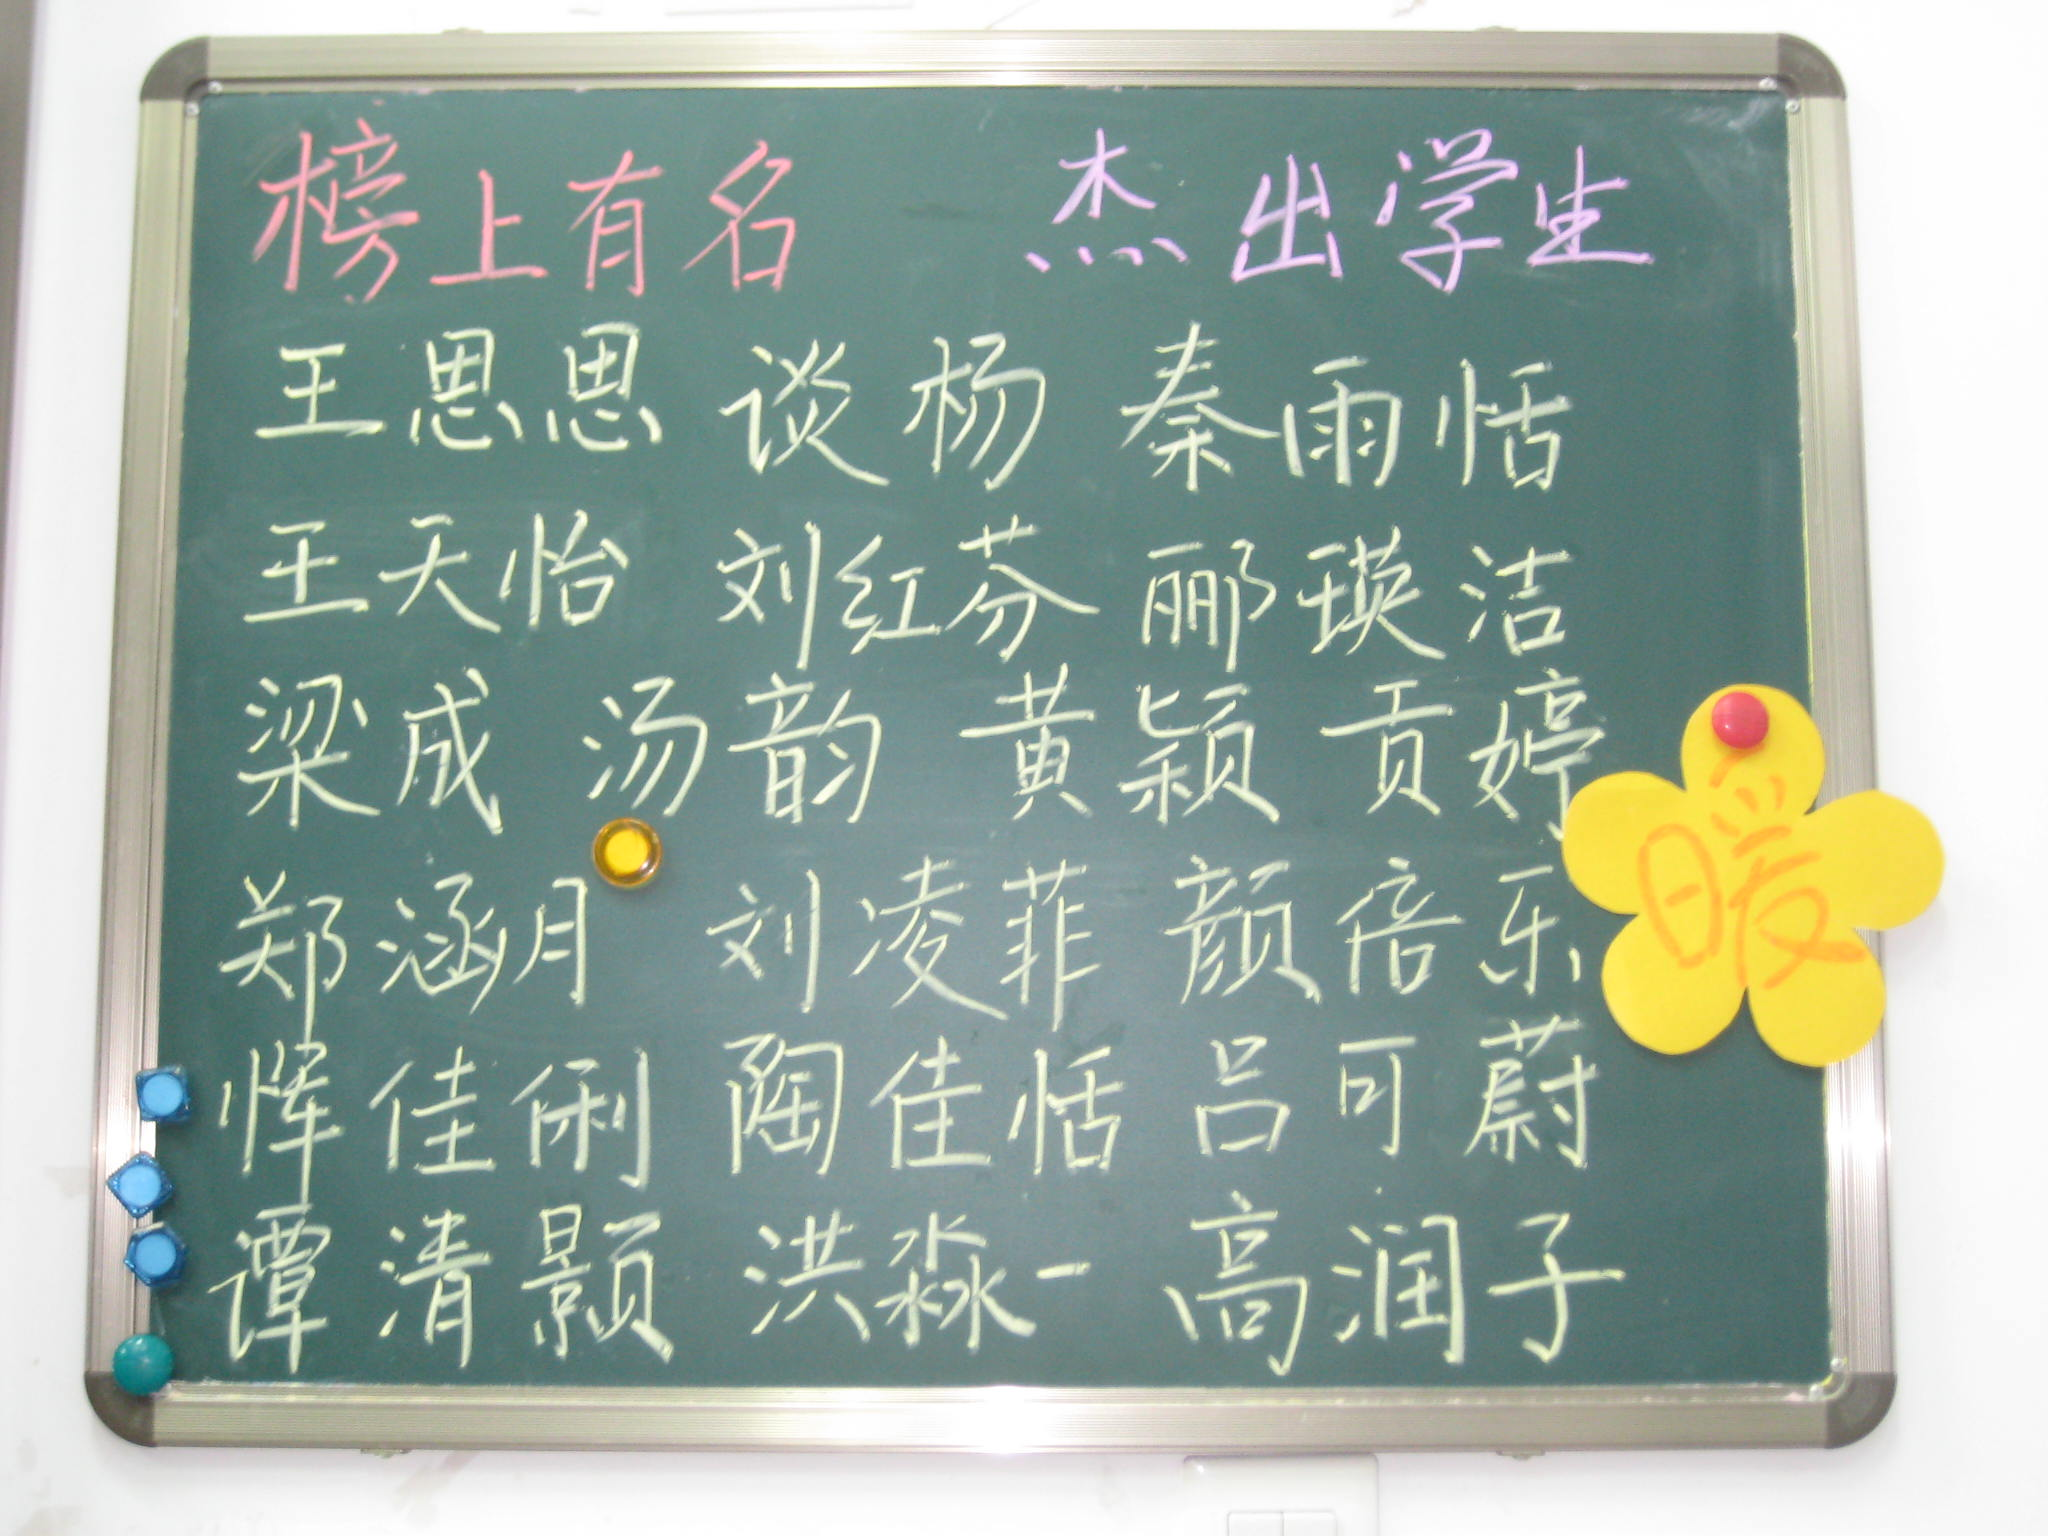 榜上有名 杰出学生
王思思 谈杨 秦雨恬
王天怡 刘红芬 郦瑛洁
梁成 汤韵 黄颖 贡婷
郑涵月 刘凌菲 颜倍乐
恽佳俐 陶佳恬 吕可蔚
谭清颢 洪淼一 高润子
暖